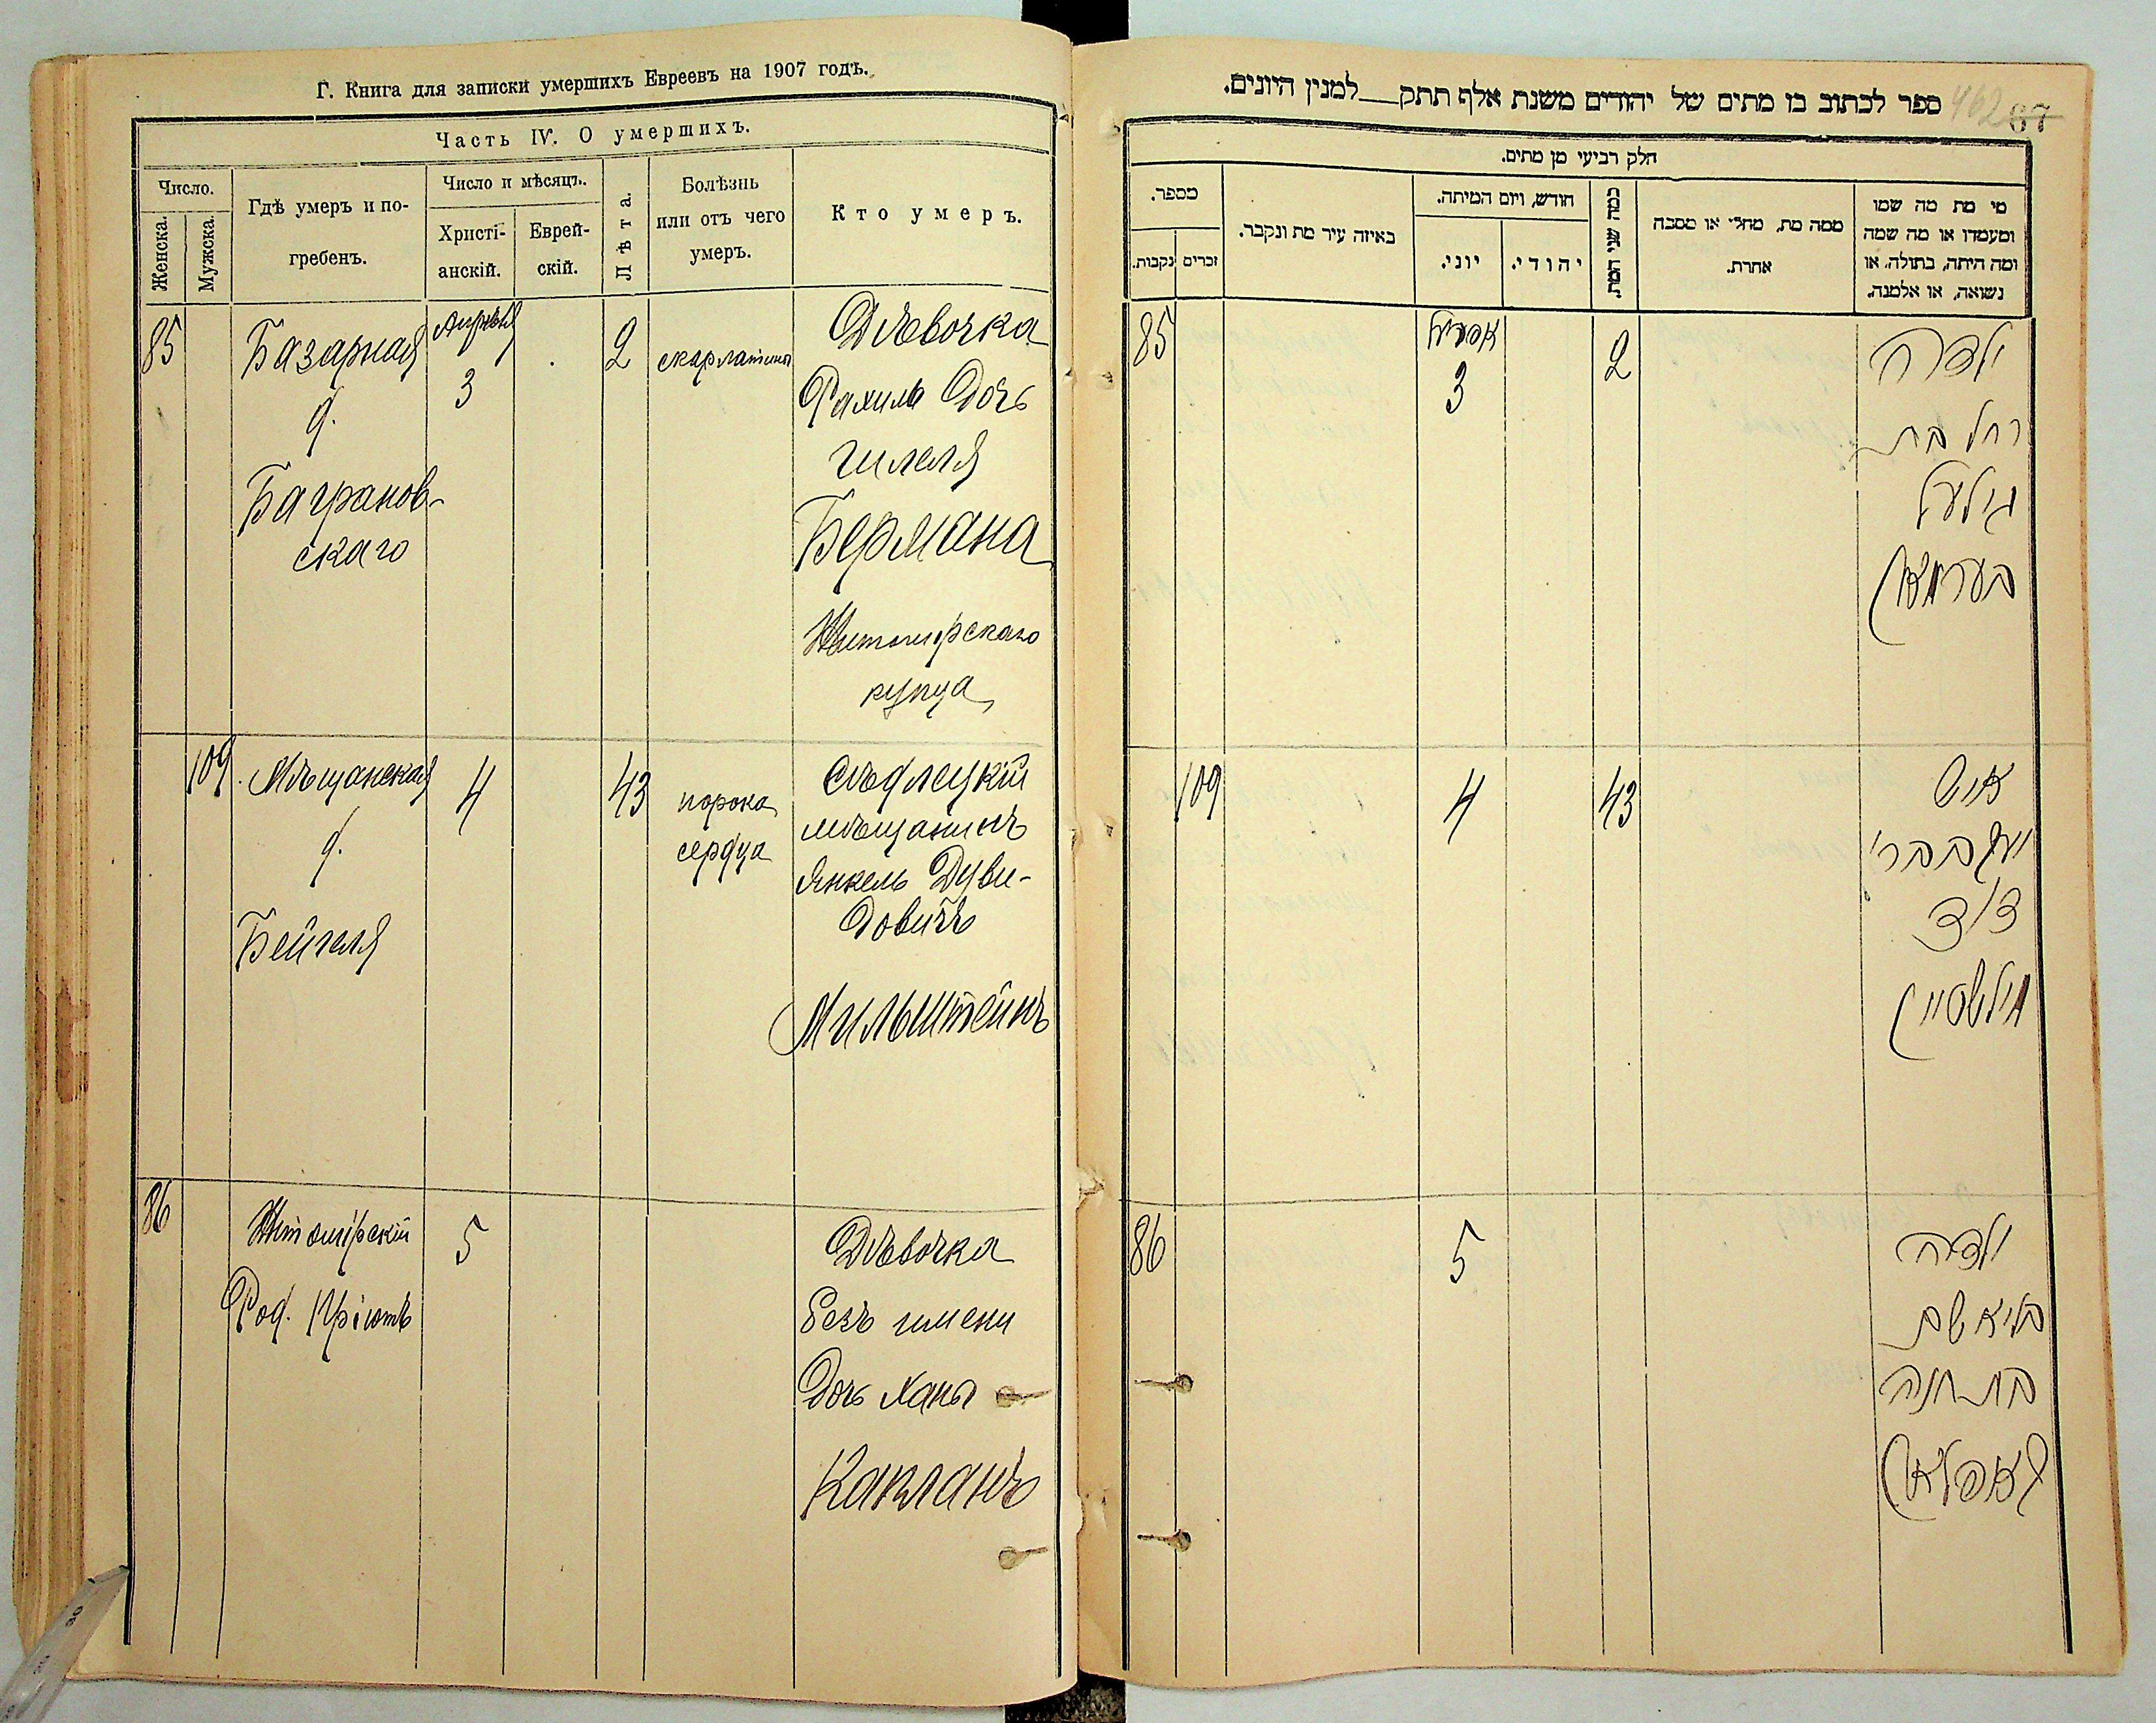 Г. Книга для записки умершихъ Евреевъ на 1907 годъ.
Часть IV. О умершихъ.
Число.
Женска.
Мужска.
Гдѣ умеръ и по-
гребенъ.
Число и мѣсяцъ.
Христі-
анскій.
Еврей-
скій.
Лѣта.
Болѣзнь
или отъ чего
умеръ.
Кто умеръ.
85
Базарная
д.
Багранов-
скаго
Апрѣля
3
2
скарлатина
Дѣвочка
Рахиль Дочь
Гилеля
Бермана
Житомірскаго
купца
109
Мѣщанская
д.
Бейгеля
4
43
порока
сердца
Сѣдлецкій
мѣщанинъ
Янкель Дуви-
довичъ
Мильштейнъ
86
Житомірскій
Род. Пріютъ
5
Дѣвочка
безъ имени
Дочь Ханы
Капланъ
ספר לכתוב בו מתים של יהודים משנת אלף תתק__למנין היונים.
462
67
חלק רביעי מן מתים.
מספר.
נקבות.
זכרים
באיזה עיר מת ונקבר.
חודש, ויום המיתה.
יוני.
יהודי.
כמה שני המת.
ממה מת, מחלי או מסבה
אחרת.
מי מת מה שמו
ומעמדו או מה שמה
ומה היתה, בתולה, או
נשואה, או אלמנה.
85
אפריל
3
2
ילדה
רחל בת
גילעל
בערמאן
109
4
43
איש
יעקב בר'
דוד
מילשטיין
86
5
ילדה
בליא שם
בת חנה
קאפלאן